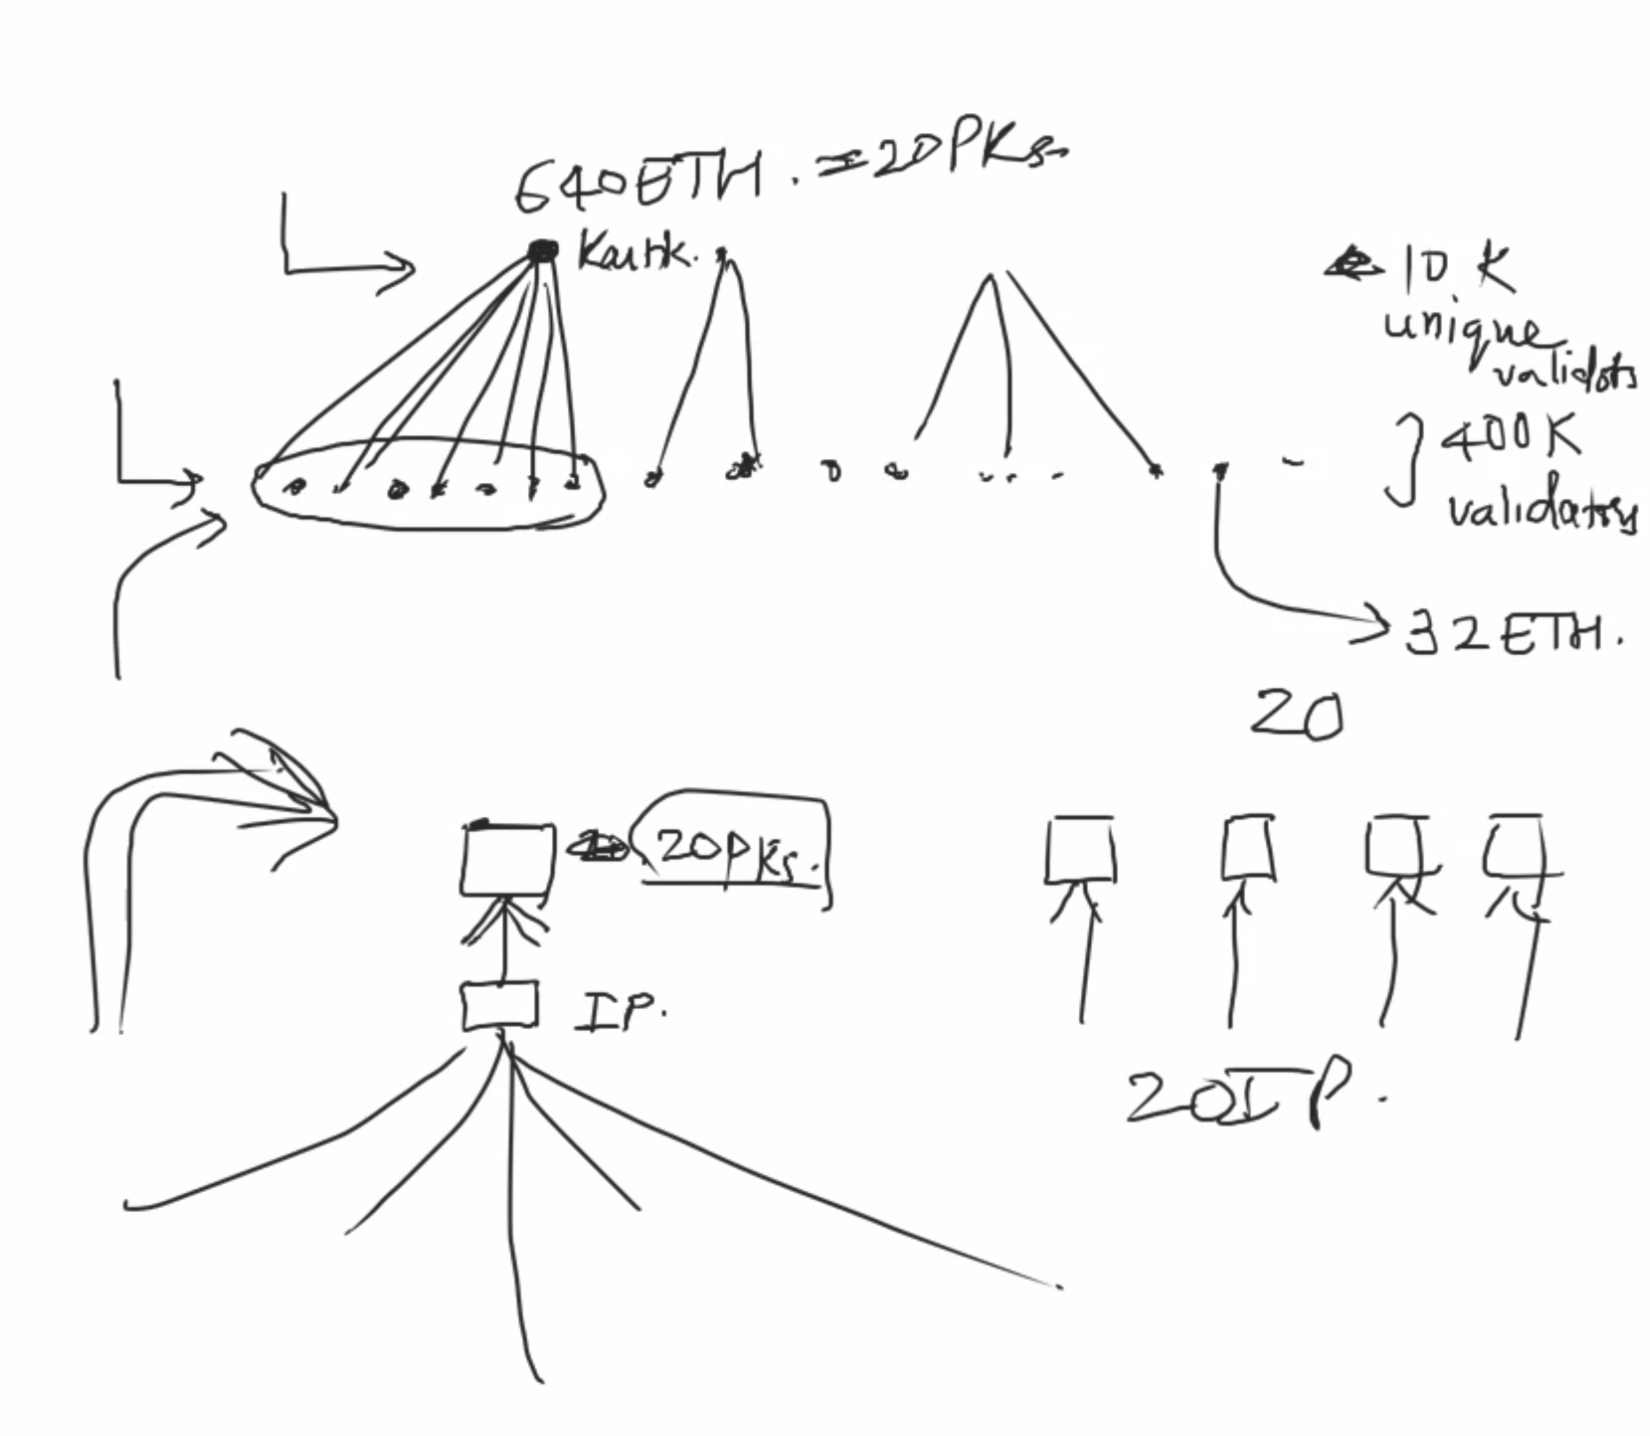 640ETH. = 20PKs
Kartik.
10K
unique
validators
400K
validators
32ETH.
20
20PKs.
IP.
20IP.